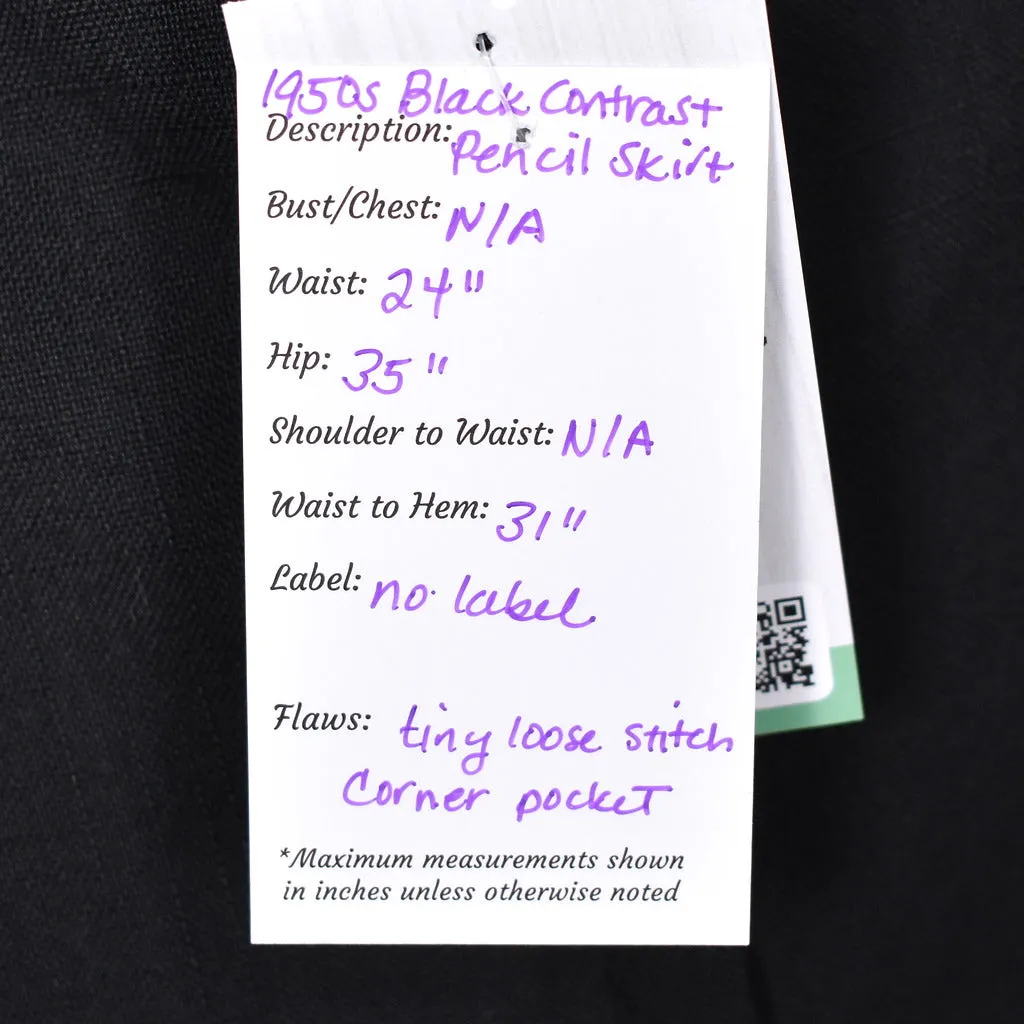 1950s Black Contrast
Description: Pencil Skirt
Bust/Chest: N/A
Waist: 24"
Hip: 35"
Shoulder to Waist: N/A
Waist to Hem: 31"
Label: no label
Flaws: tiny loose stitch
corner pocket
*Maximum measurements shown
in inches unless otherwise noted